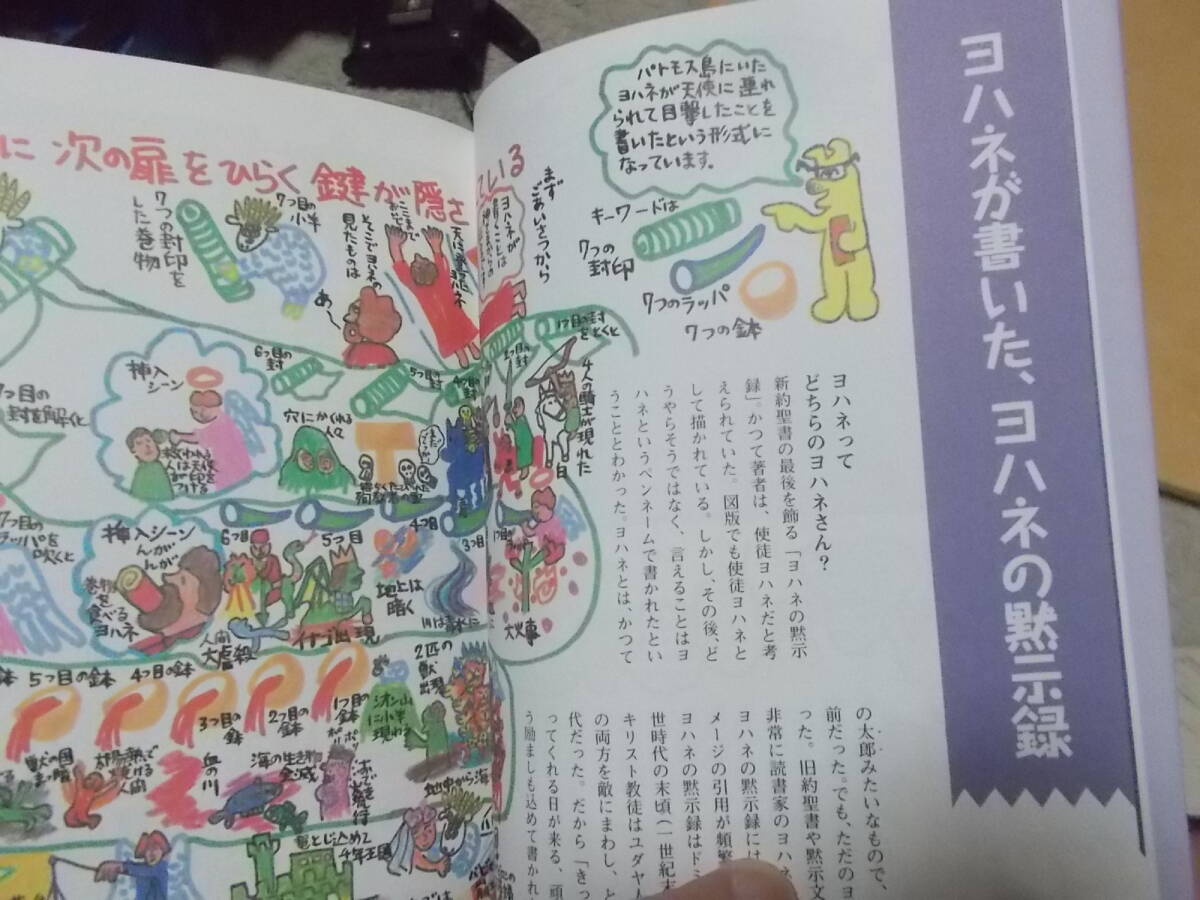 ヨハネが書いた、ヨハネの黙示録
パトモス島にいた
ヨハネが天使に連れ
られて目撃したことを
書いたという形式に
なっています。
キーワードは
7つの
封印
7つのラッパ
7つの鉢
ヨハネって
どちらのヨハネさん?
新約聖書の最後を飾る「ヨハネの黙示
録」。かつて著者は、使徒ヨハネだと考
えられていた。図版でも使徒ヨハネと
して描かれている。しかし、その後、ど
うやらそうではなく、言えることはヨ
ハネというペンネームで書かれたとい
うこととわかった。ヨハネとは、かつて
の太郎みたいなもので、
前だった。でも、ただのヨ
った。旧約聖書や黙示文
非常に読書家のヨハネ
ヨハネの黙示録には
メージの引用が頻繁
ヨハネの黙示録はドミ
世時代の末頃(一世紀末
キリスト教徒はユダヤ人
の両方を敵にまわし、と
代だった。だから「きっ
ってくれる日が来る、頑
う励ましも込めて書かれ
に次の扉をひらく鍵が隠さ
れている
まず
ごあいさつから
7つの封印を
した巻物
7つ目の
小羊
そこでヨハネの
見たものは
ここまで
おいで
あ〜
1つ目の封
をとくと
2つ目の
封
4つ目の
封
5つ目の
封
6つ目の
封
7つ目の
封を解くと
4人の騎士が現れた
挿入
シーン
救われる
人は天使
が印を
つける
穴にかくれる
人々
7つ目の
ラッパを
吹くと
挿入シーン
んが
んが
巻物
を
食べる
ヨハネ
6つ目
5つ目
4つ目
3つ目
人間
大虐殺
イナゴ出現
地上は
暗く
大火事
5つ目の鉢
4つ目の鉢
3つ目の
鉢
2つ目の
鉢
1つ目の
鉢
シオン山
に小羊
現れる
2匹の
獣
出現
獣の国
まっ暗
太陽熱で
焼ける
人間
血の川
海の生き物
全滅
地中から海
竜とじ込めて
千年王国